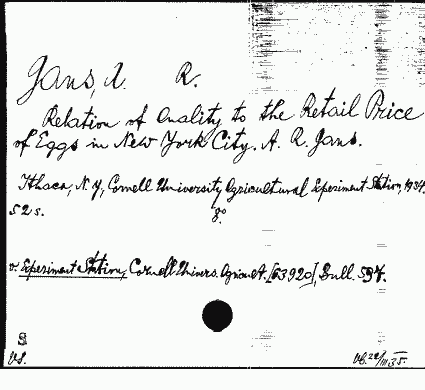 Gans, A. R.
Relation of Quality to the Retail Price
of Eggs in New York City. A. R. Gans.
Ithaca, N. Y., Cornell University Agricultural Experiment Station, 1934.
52 s. 8º
v. Experiment Station, Cornell Univers. Agricult. [63920], Bull. 597.
S
VS.